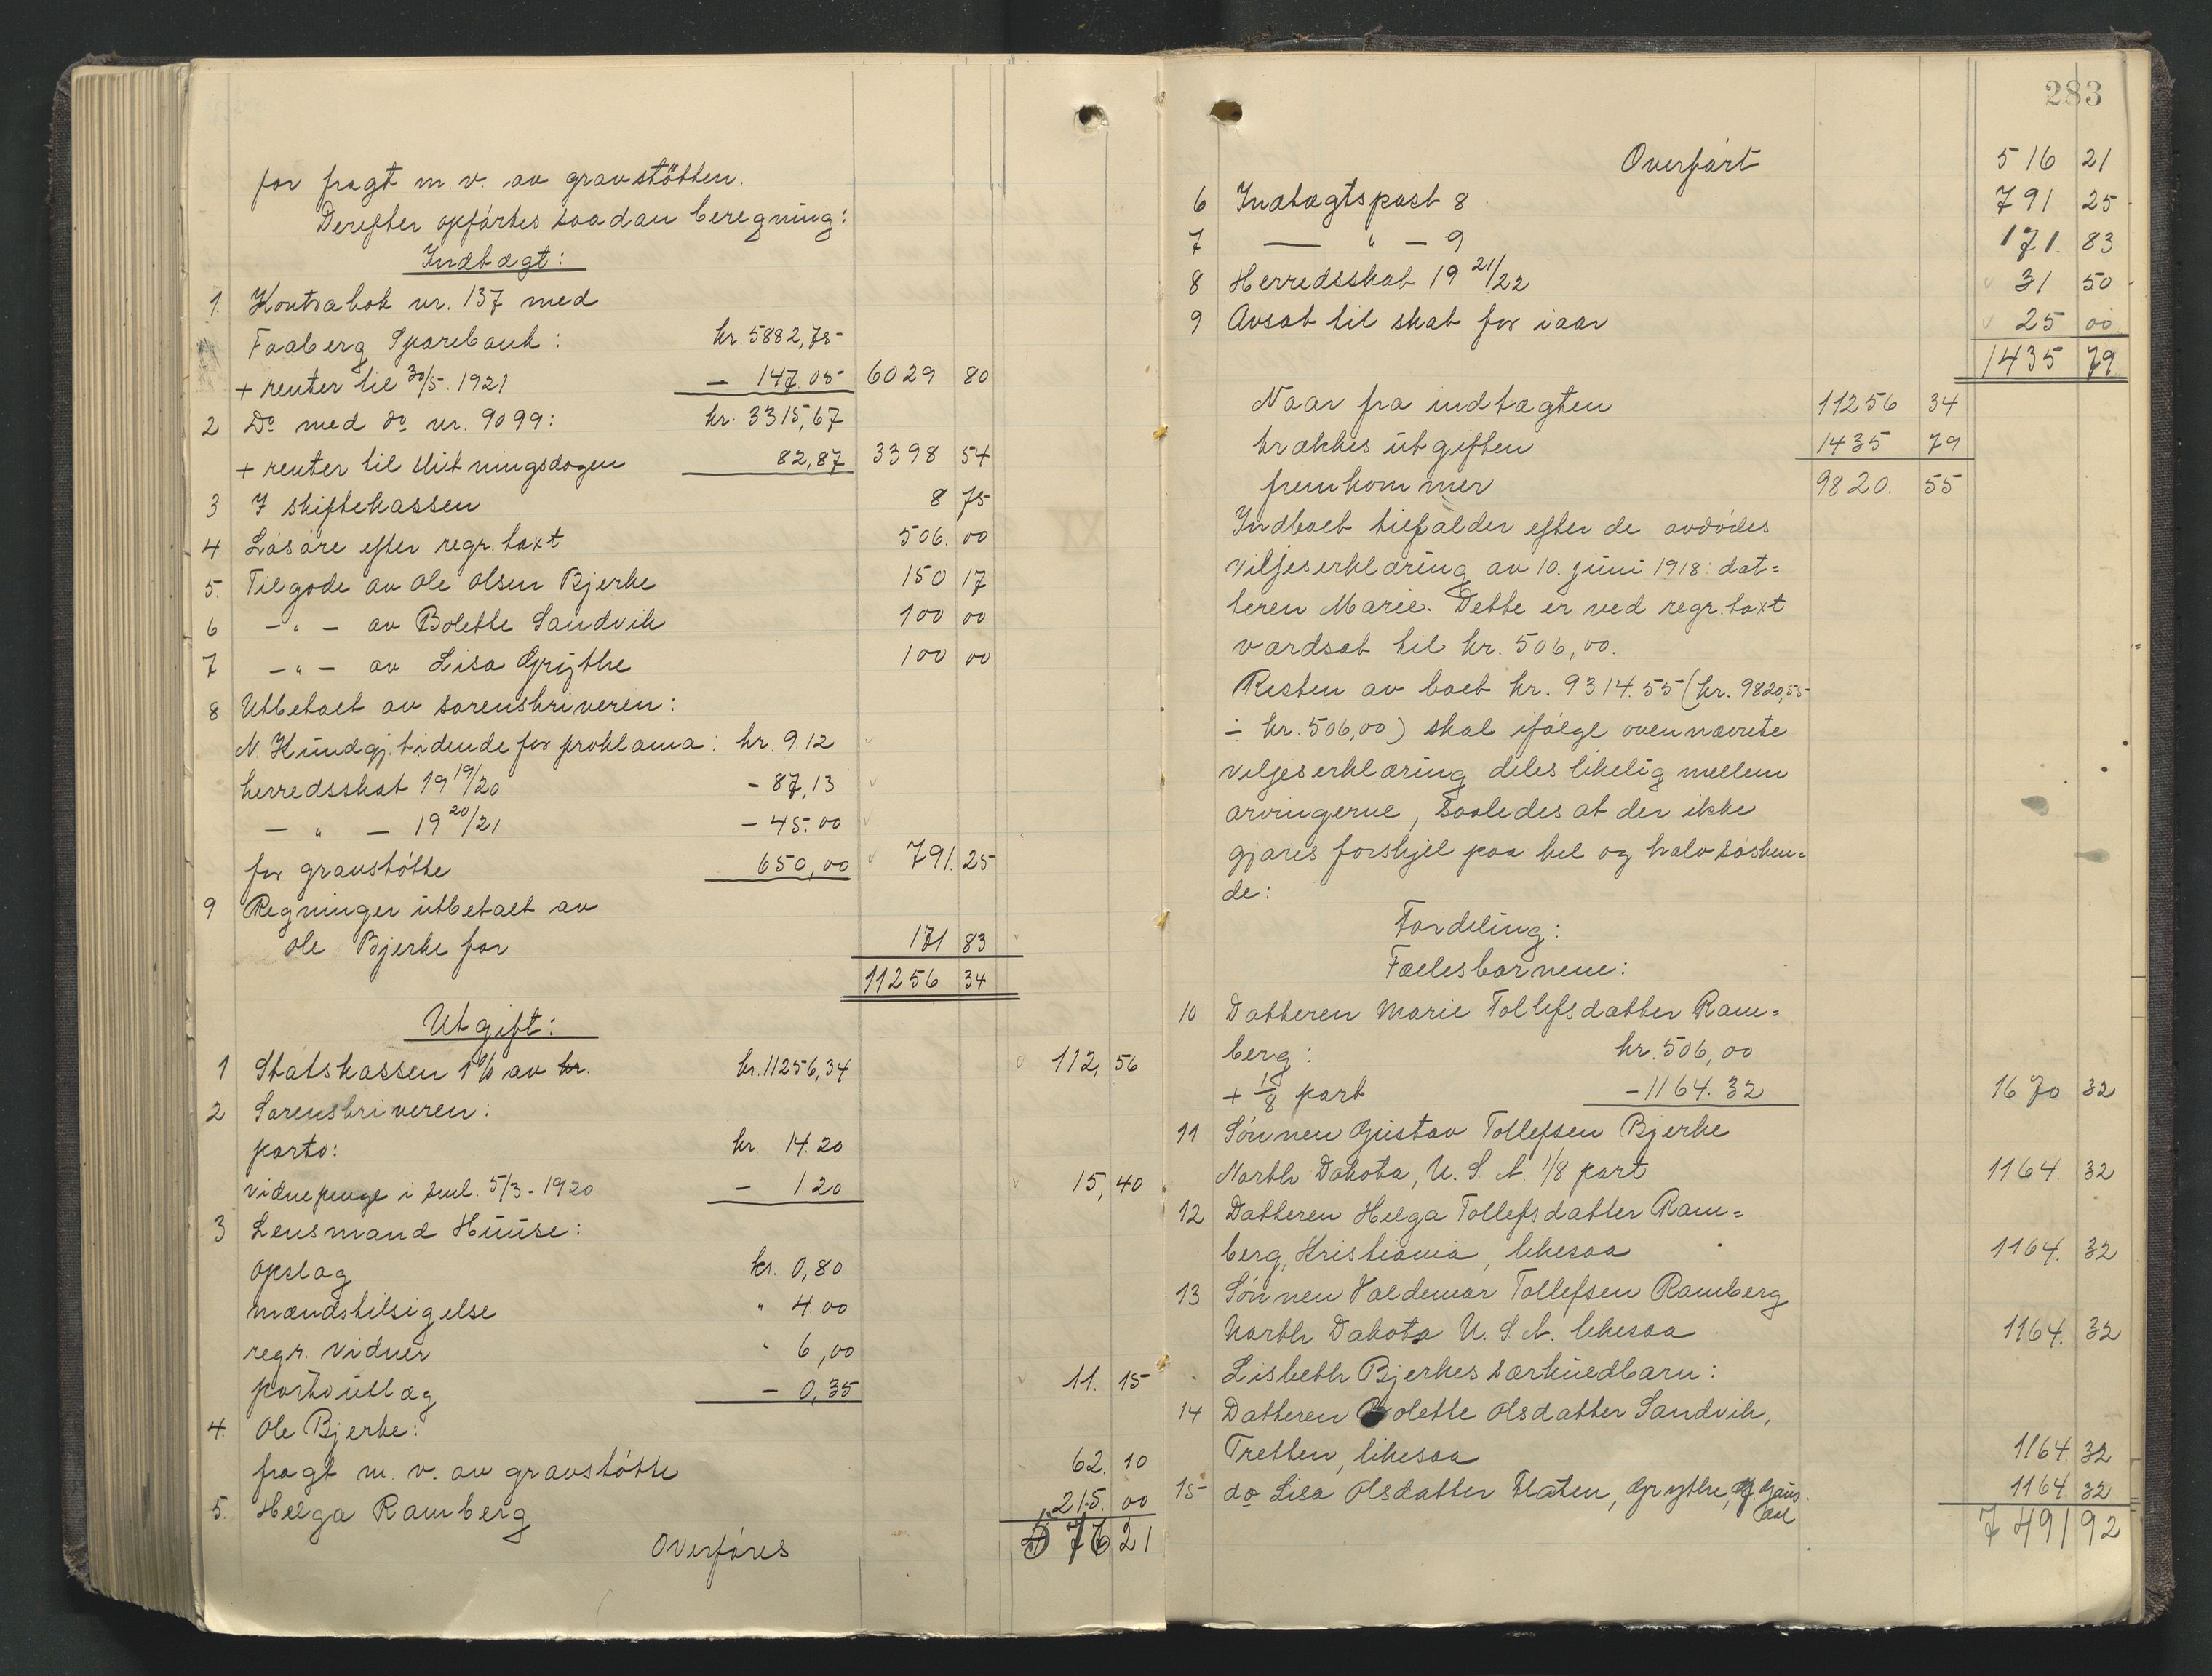 for fragt m. v. av gravstötten.
Derefter opförtes saadan beregning:
Indtægt:
1. Kontrabok nr. 137 med
Faaberg Sparebank: kr. 5882,75
+ renter til 30/5. 1921 – 147.05 6029 80
2 Do med do nr. 9099: kr. 3315,67
+ renter til slutningsdagen 82,87 3398 54
3 I skiftekassen 8 75
4. Lösöre efter regr. taxt 506. 00
5. Tilgode av Ole Olsen Bjerke 150 17
6 – " – av Bolette Sandvik 100 00
7 – " – av Lisa Grythe 100 00
8 Utbetalt av sorenskriveren:
N. Kundgj. tidende for proklama: kr. 9.12
herredsskat 19 19/20 – 87,13
– " – 19 20/21 – 45.00
for gravstötte 650,00 791. 25
9 Regninger utbetalt av
Ole Bjerke for 171 83
11256 34
Utgift:
1 Statskassen 1% av kr. kr. 11256,34 112, 56
2 Sorenskriveren:
porto: kr. 14.20
vidnepenge i sml. 5/3 - 1920 – 1.20 15, 40
3 Lensmand Huuse:
opslag kr. 0,80
mændstilsigelse " 4.00
regr. vidner " 6,00
portoutlæg – 0,35 11. 15
4. Ole Bjerke:
fragt m. v. av gravstötte 62. 10
5. Helga Ramberg 215. 00
Overföres 21
283
Overfört 516 21
6 Indtægtspost 8 791 25
7 — " — 9 171. 83
8 Herredsskat 19 21/22 31 50
9 Avsat til skat for iaar 25 00
1435 79
Naar fra indtægten 11256 34
trækkes utgiften 1435 79
fremkommer 9820. 55
Indboet tilfalder efter de avdödes
viljeserklæring av 10. juni 1918: dat=
teren Marie. Dette er ved regr. taxt
værdsat til kr. 506,00.
Resten av boet kr. 9314.55 (kr. 9820,55
÷ kr. 506,00) skal ifölge ovennævnte
viljeserklæring deles likelig mellem
arvingerne, saaledes at der ikke
gjöres forskjel paa hel og halvsösken=
de:
Fordeling:
Fællesbarnene:
10 Datteren Marie Tollefsdatter Ram=
berg: kr. 506,00
+ 1/8 part – 1164.32 1670 32
11 Sönnen Gustav Tollefsen Bjerke
North Dakota, U. S. A. 1/8 part 1164. 32
12 Datteren Helga Tollefsdatter Ram=
berg, Kristiania, likesaa 1164. 32
13 Sönnen Valdemar Tollefsen Ramberg
North Dakota U. S. A. likesaa 1164. 32
Lisbeth Bjerkes særkuldbarn:
14 Datteren Bolette Olsdatter Sandvik,
Tretten, likesaa 1164. 32
15 do Lisa Olsdatter Flaten, Grythe, Ø Gaus
dal 1164. 32
7491 92